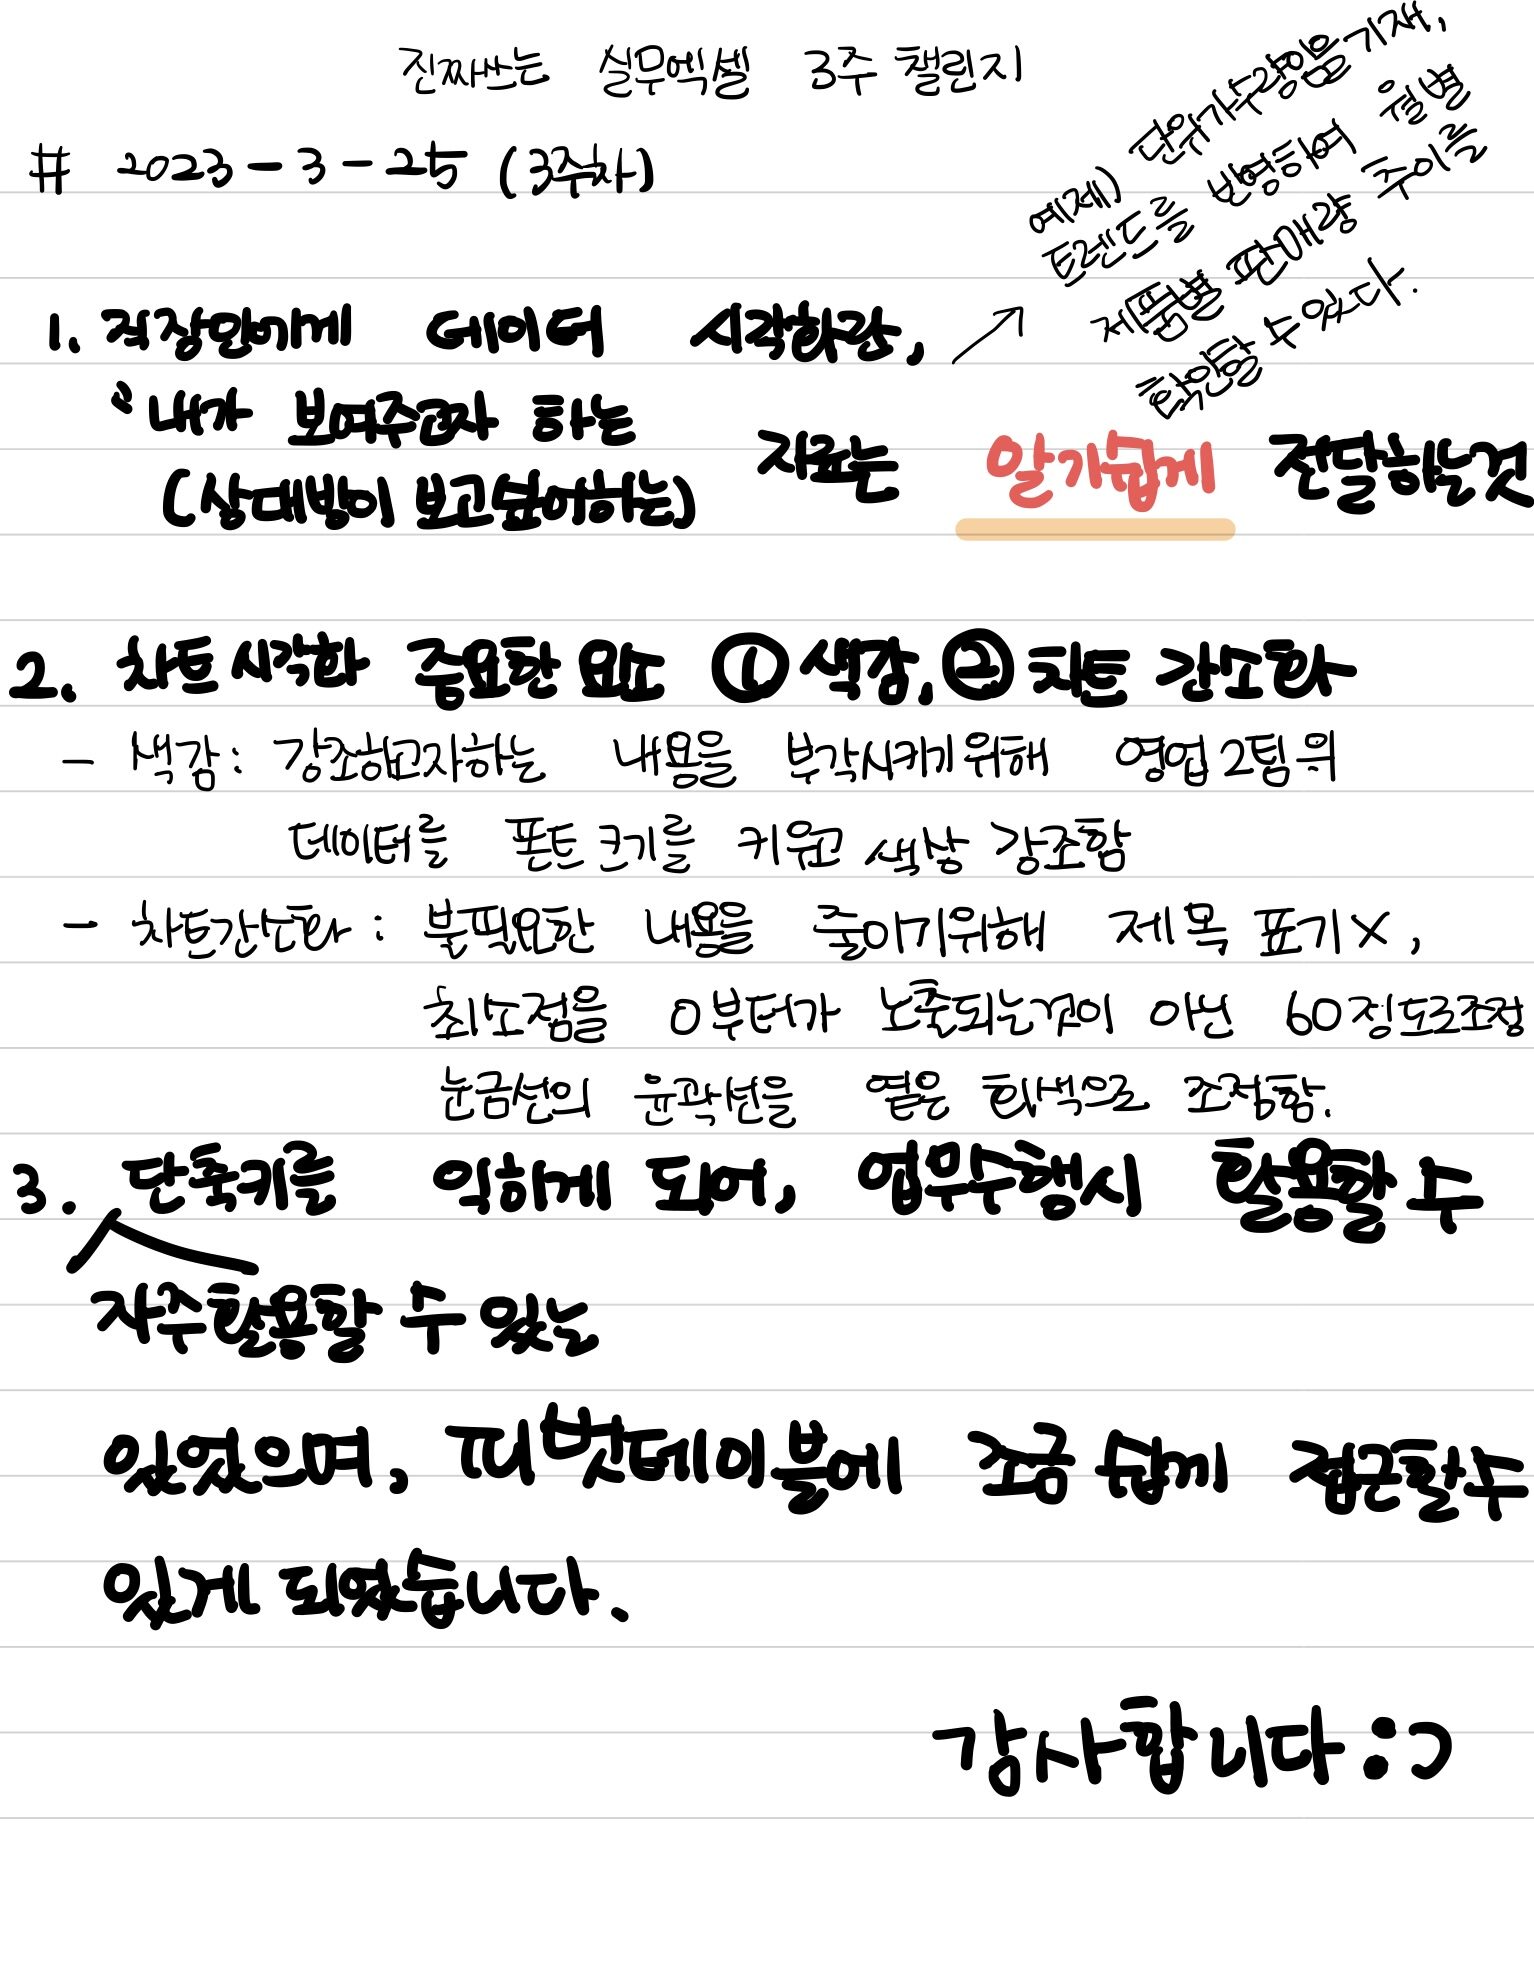 진짜쓰는 실무엑셀 3주 챌린지
# 2023-3-25 (3주차)
예제) 단위가수량임을기재,
트렌드를 반영하여 월별
제품별 판매량 추이를
확인할 수 있다.
1. 직장인에게 데이터 시각화란,
"내가 보여주고자 하는
(상대방이 보고싶어하는)
자료는 알기쉽게 전달하는것
2. 차트시각화 중요한 요소 ① 색감, ② 차트 간소화
- 색감: 강조하고자하는 내용을 부각시키기위해 영업2팀의
데이터를 폰트크기를 키우고 색상 강조함
- 차트간소화: 불필요한 내용을 줄이기위해 제목 표기X,
최소점을 0부터가 노출되는것이 아닌 60정도로조정
눈금선의 윤곽선을 옅은 회색으로 조정함.
3. 단축키를 익히게 되어, 업무수행시 활용할 수
자주활용할 수 있는
있었으며, 피벗테이블에 조금 쉽게 접근할수
있게 되었습니다.
감사합니다:)